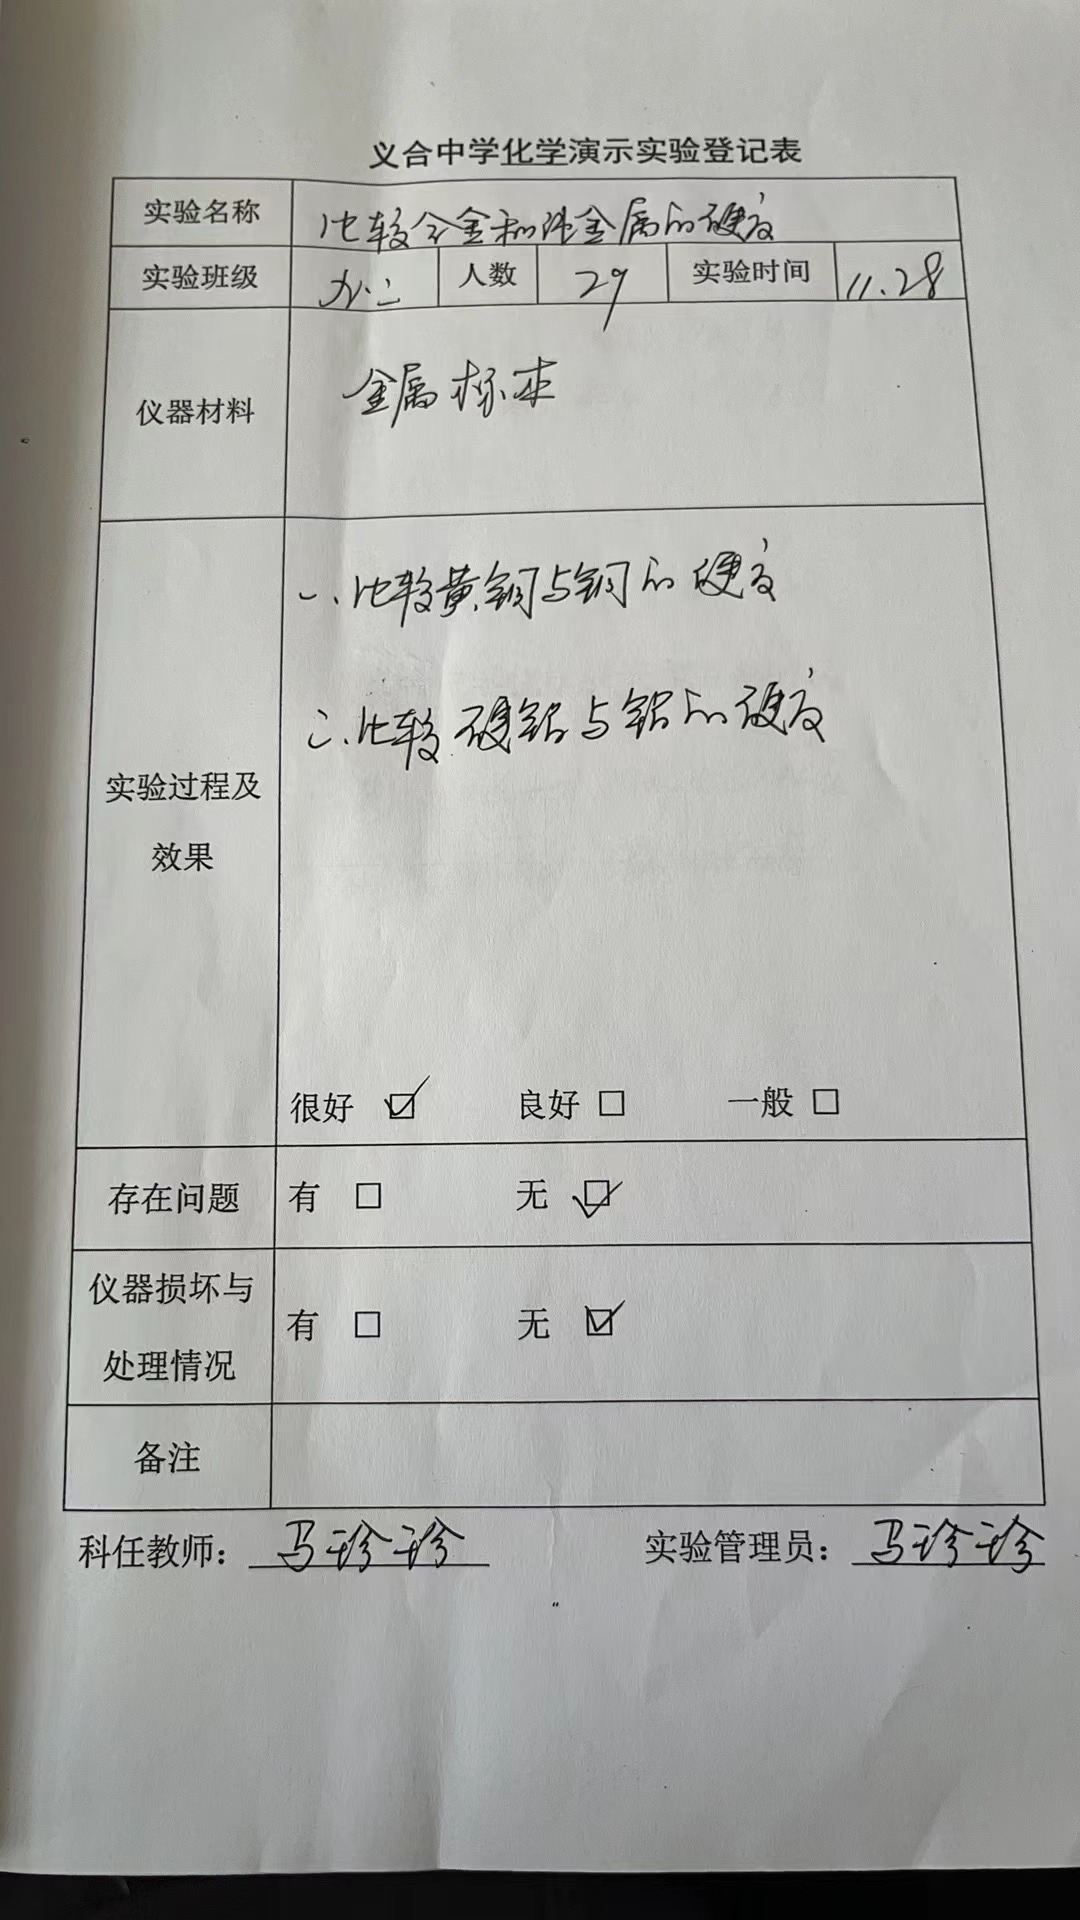 义合中学化学演示实验登记表
实验名称 比较合金和纯金属的硬度
实验班级 九.二 人数 29 实验时间 11.28
仪器材料 金属标本
一.比较黄铜与铜的硬度
二.比较硬铝与铝的硬度
实验过程及
效果
很好 ☑ 良好 □ 一般 □
存在问题 有 □ 无 ☑
仪器损坏与
处理情况
有 □ 无 ☑
备注
科任教师：马珍珍 实验管理员：马珍珍